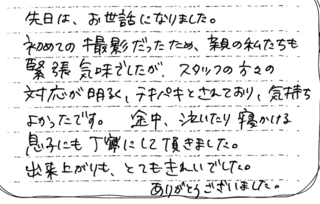 先日は、お世話になりました。
初めての撮影だったため、親の私たちも
緊張気味でしたが、スタッフの方々の
対応が明るく、テキパキとされており、気持ち
よかったです。 途中、泣いたり寝かける
息子にも丁寧にして頂きました。
出来上がりも、とてもきれいでした。
ありがとうございました。